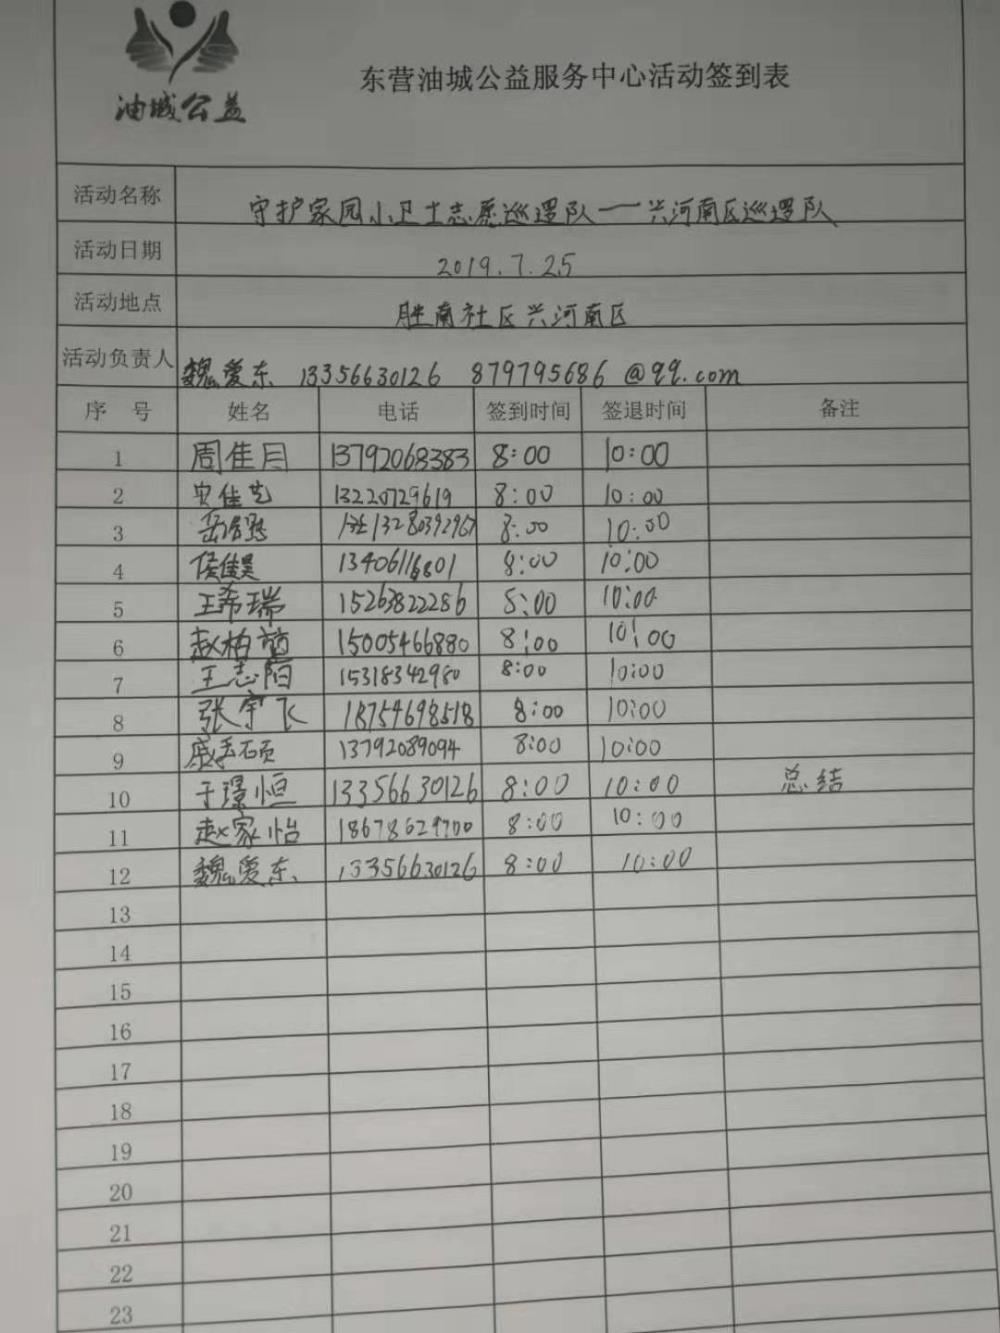 油城公益
东营油城公益服务中心活动签到表
活动名称 守护家园小卫士志愿巡逻队——兴河南区巡逻队
活动日期 2019.7.25
活动地点 胜南社区兴河南区
活动负责人 魏爱东 13356630126 879795686@qq.com
序号 姓名 电话 签到时间 签退时间 备注
1 周佳月 13792068383 8:00 10:00
2 安佳艺 13220729619 8:00 10:00
3 13280392967 8:00 10:00
4 侯佳昊 13406116801 8:00 10:00
5 王希瑞 15263822286 8:00 10:00
6 赵柏 15005466880 8:00 10:00
7 王志陌 15318342980 8:00 10:00
8 张宇飞 18754698518 8:00 10:00
9 13792089094 8:00 10:00
10 于璟恒 13356630126 8:00 10:00 总结
11 赵家怡 18678629700 8:00 10:00
12 魏爱东 13356630126 8:00 10:00
13
14
15
16
17
18
19
20
21
22
23